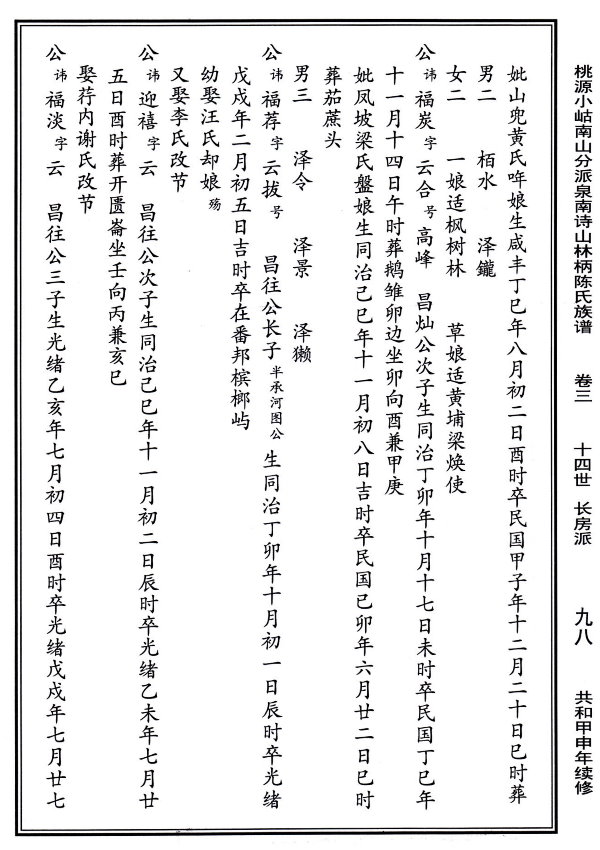 桃源小岵南山分派泉南诗山林柄陈氏族谱 卷三 十四世 长房派 九八 共和甲申年续修
妣山兜黄氏哖娘生咸丰丁巳年八月初二日酉时卒民国甲子年十二月二十日巳时葬
男二 栢水 泽鑨
女二 一娘适枫树林 草娘适黄埔梁焕使
公讳福炭字云合号高峰 昌灿公次子生同治丁卯年十月十七日未时卒民国丁巳年
十一月十四日午时葬鹅雏卵边坐卯向酉兼甲庚
妣凤坡梁氏盤娘生同治己巳年十一月初八日吉时卒民国己卯年六月廿二日巳时
葬茄蔗头
男三 泽令 泽景 泽獭
公讳福荐字云拔号 昌往公长子半承河图公生同治丁卯年十月初一日辰时卒光绪
戊戌年二月初五日吉时卒在番邦槟榔屿
幼娶汪氏却娘殇
又娶李氏改节
公讳迎禧字云 昌往公次子生同治己巳年十一月初二日辰时卒光绪乙未年七月廿
五日酉时葬开匮崙坐壬向丙兼亥巳
娶荇内谢氏改节
公讳福淡字云 昌往公三子生光绪乙亥年七月初四日酉时卒光绪戊戌年七月廿七